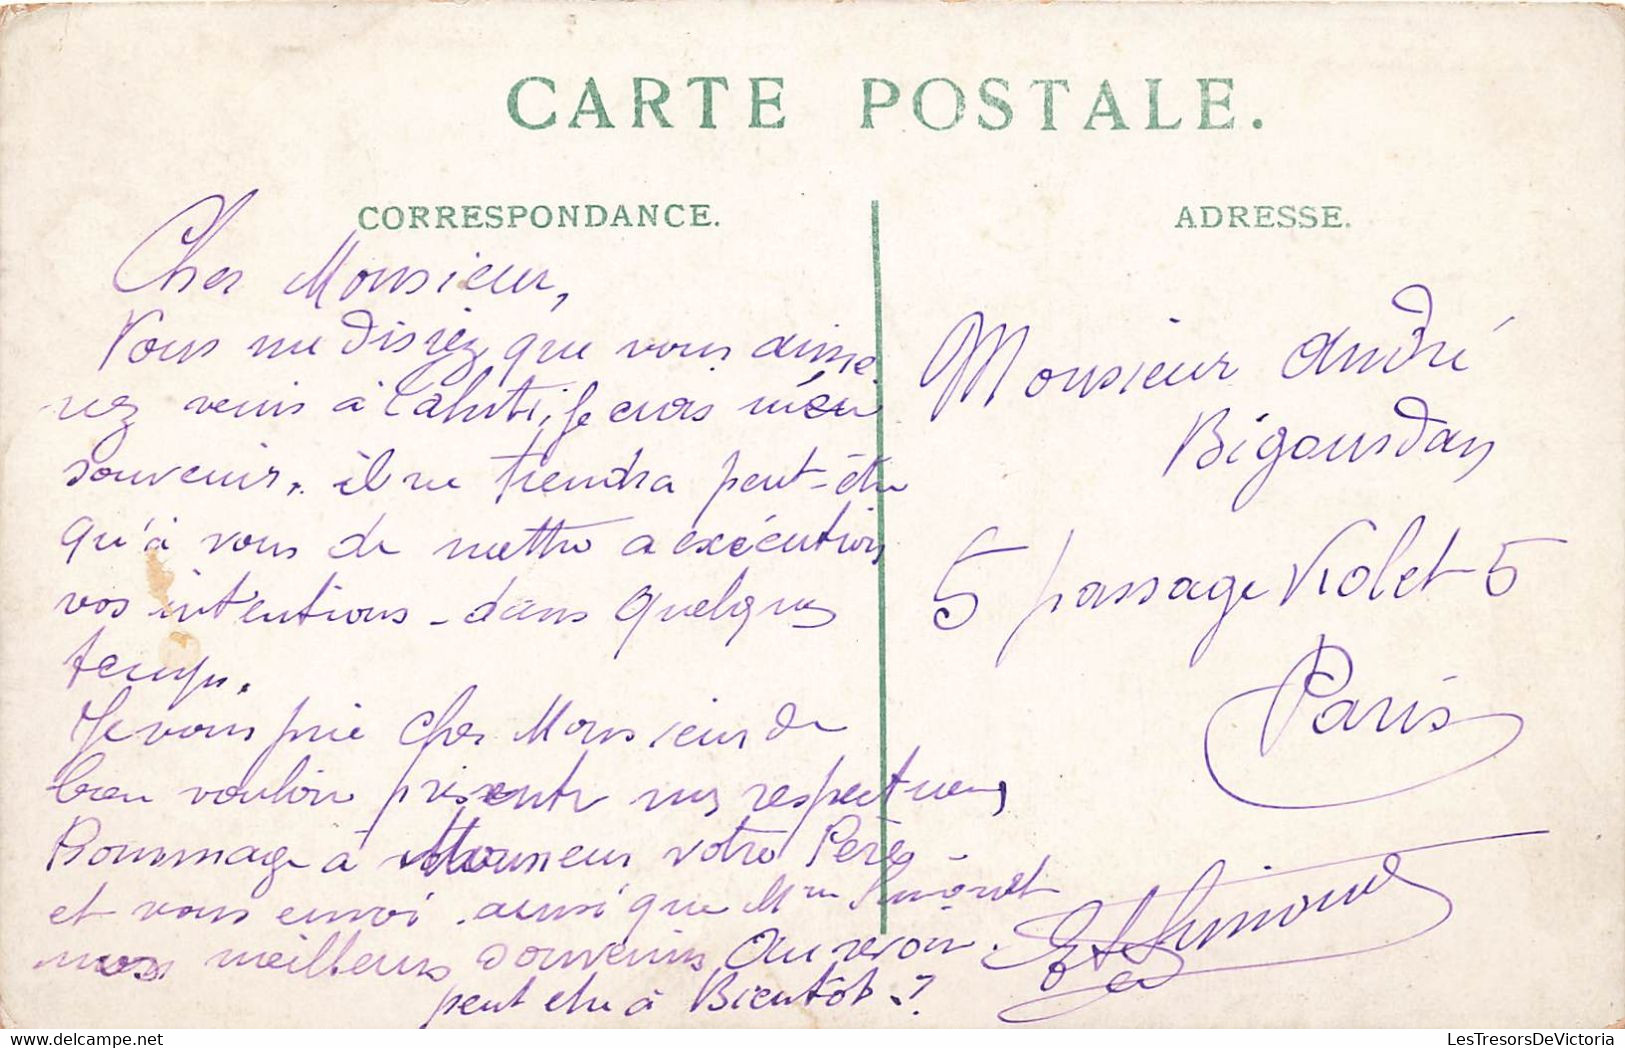 CARTE POSTALE.
CORRESPONDANCE.
Cher Monsieur,
Vous me disiez que vous aime
rez venir à Tahiti, Je crois m'en
souvenir. il ne tiendra peut-être
qu'à vous de mettre a exécution
vos intentions - dans quelques
temps.
Je vous prie cher Monsieur de
bien vouloir présenter mes respectueux
Hommage à Monsieur votre Père -
et vous envoi ainsi que Mme Simonet
mes meilleurs souvenirs Au revoir.
peut etre à Bientôt.?
ADRESSE.
Monsieur André
Bigourdan
5 passage Violet 5
Paris
LesTresorsDeVictoria